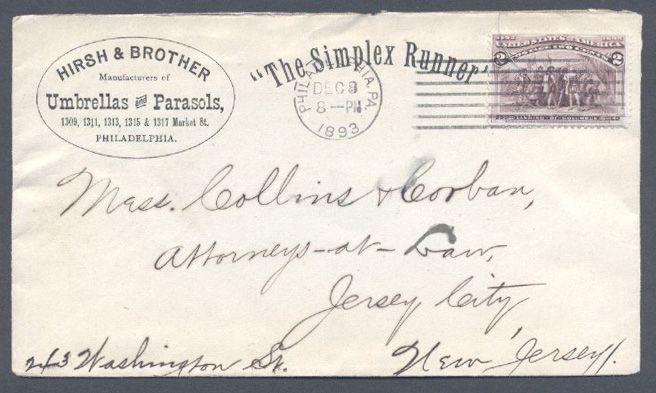 HIRSH & BROTHER
Manufacturers of
Umbrellas and Parasols,
1309, 1311, 1313, 1315 & 1317 Market St.
PHILADELPHIA.
"The Simplex Runner"
PHILADELPHIA, PA.
DEC 8
8 — PM
1893
1492 1892
UNITED STATES OF AMERICA
2 2
LANDING OF COLUMBUS
Mess. Collins & Corban,
Attorneys-at-Law,
Jersey City,
243 Washington St. New Jersey.